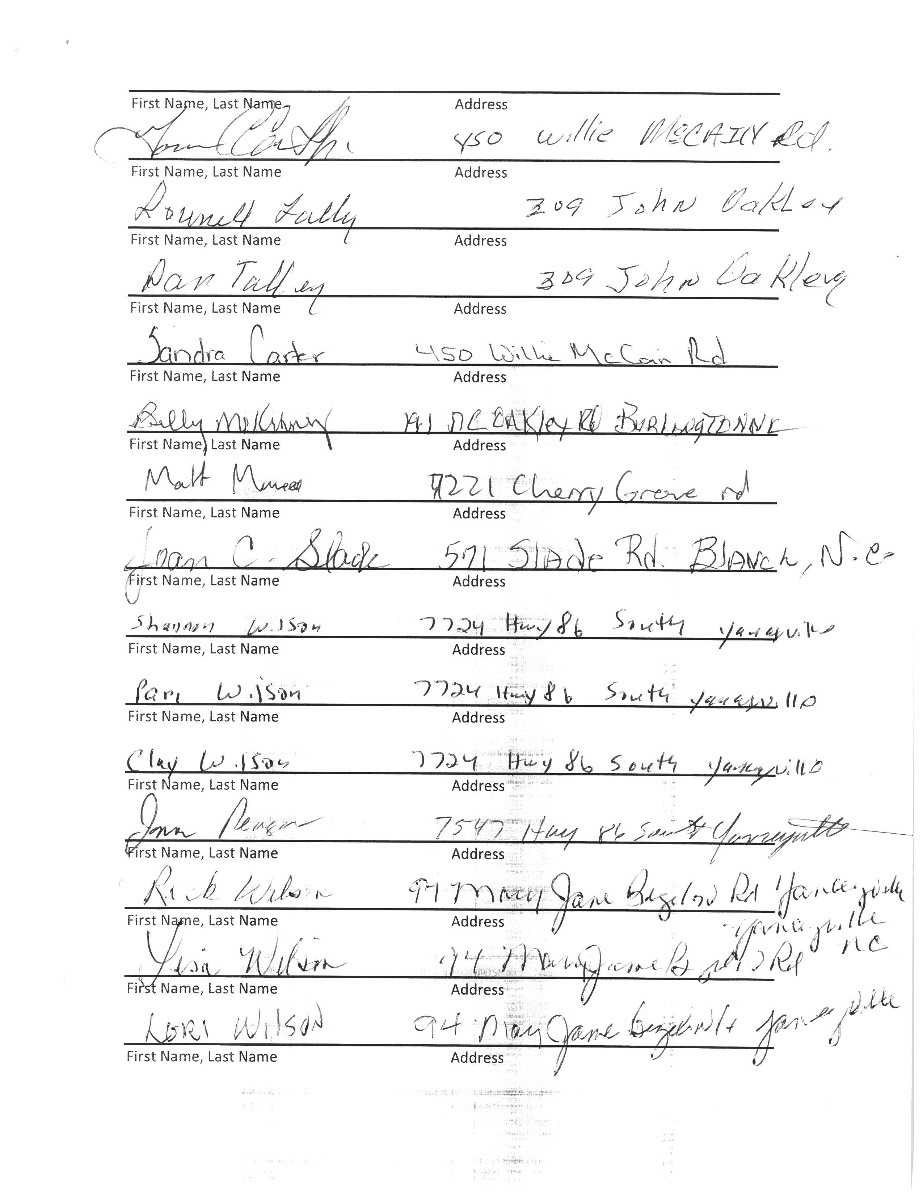 First Name, Last Name Address
450 Willie McCAIN Rd.
First Name, Last Name Address
309 John Oakley
First Name, Last Name Address
Dan Talley 309 John Oakley
First Name, Last Name Address
Sandra Carter 450 Willie McCain Rd
First Name, Last Name Address
Billy 191 Rd
First Name, Last Name Address
Matt 7221 Cherry Grove rd
First Name, Last Name Address
Joan C. Slade 571 SLADE Rd. BLANCH, N.C
First Name, Last Name Address
Shannon Wilson 7724 Hwy 86 South Yanceyville
First Name, Last Name Address
Pam Wilson 7724 Hwy 86 South Yanceyville
First Name, Last Name Address
Clay Wilson 7724 Hwy 86 South Yanceyville
First Name, Last Name Address
7547 Hwy 86 South
First Name, Last Name Address
Rick Wilson 94 Mary Jane Bigelow Rd Yanceyville
First Name, Last Name Address
Yanceyville
Lisa Wilson 94 Mary Jane Rd NC
First Name, Last Name Address
LORI WILSON 94 Mary Jane Yanceyville
First Name, Last Name Address